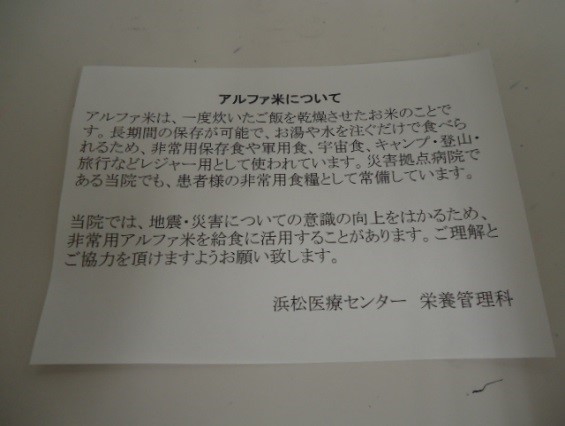 アルファ米について
アルファ米は、一度炊いたご飯を乾燥させたお米のことで
す。長期間の保存が可能で、お湯や水を注ぐだけで食べら
れるため、非常用保存食や軍用食、宇宙食、キャンプ・登山・
旅行などレジャー用として使われています。災害拠点病院で
ある当院でも、患者様の非常用食糧として常備しています。
当院では、地震・災害についての意識の向上をはかるため、
非常用アルファ米を給食に活用することがあります。ご理解と
ご協力を頂けますようお願い致します。
浜松医療センター　栄養管理科